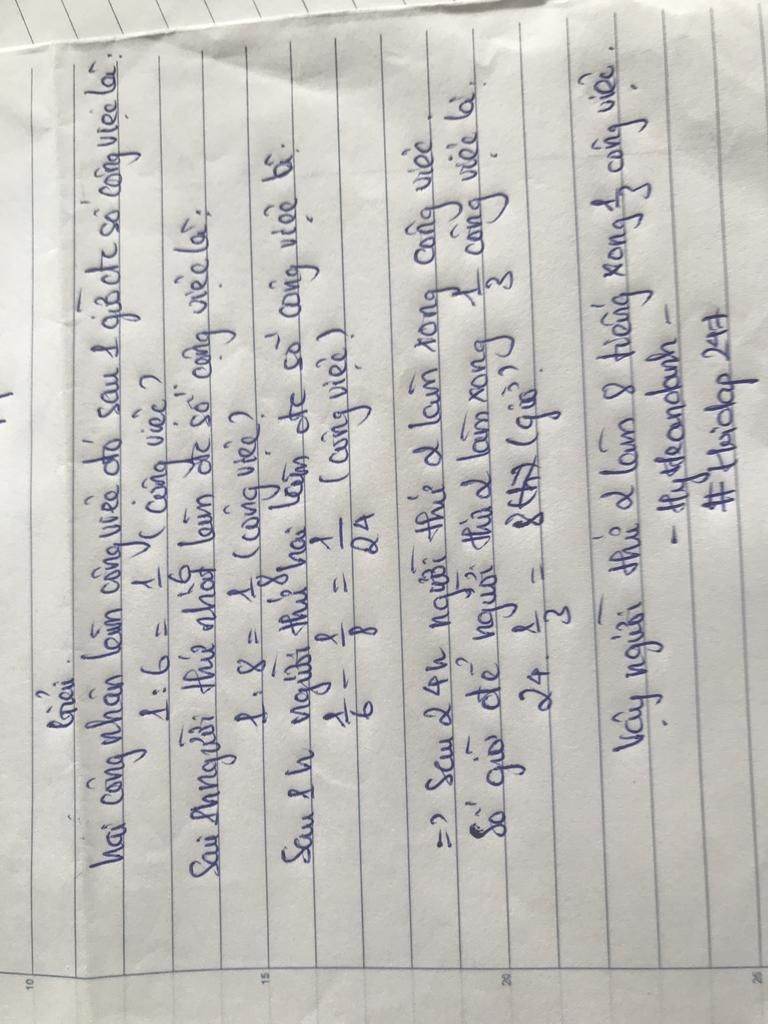 Giải.
hai công nhân làm công việc đó sau 1 giờ đc số công việc là:
1 : 6 = 1/6 (công việc)
Sau 1h người thứ nhất làm đc số công việc là:
1 : 8 = 1/8 (công việc)
Sau 1h người thứ hai làm đc số công việc là:
1/6 - 1/8 = 1/24 (công việc)
=> Sau 24h người thứ 2 làm xong công việc.
Số giờ để người thứ 2 làm xong 1/3 công việc là:
24 . 1/3 = 8 (giờ)
Vậy người thứ 2 làm 8 tiếng xong 1/3 công việc.
# Hoidap247
10
15
20
25